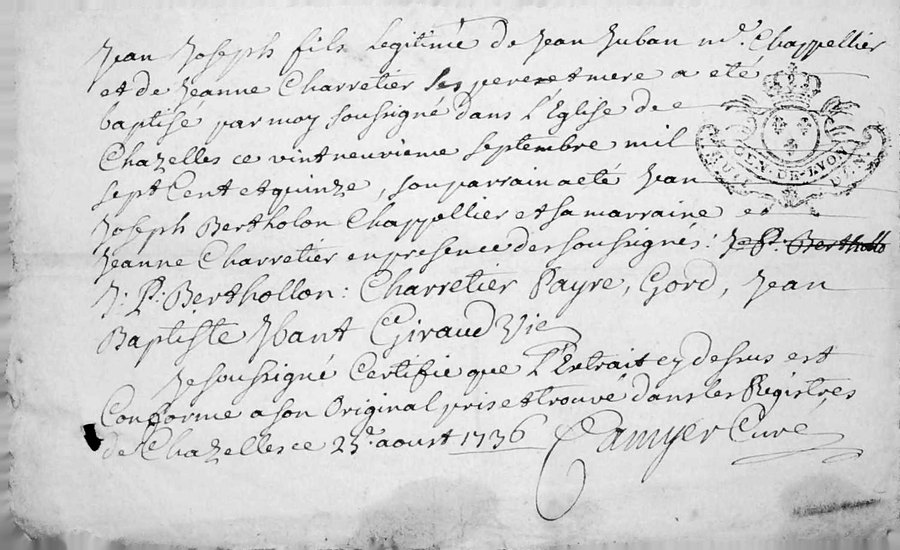 Jean Joseph fils legitime de Jean Juban md. Chappellier
et de Jeanne Charretier ses pere et mere a eté
baptisé par moy soussigné dans l'Eglise de
Chazelles ce vint neuvieme septembre mil
sept Cent et quinze, son parrain a eté Jean
Joseph Bertholon Chappellier et sa marraine
Jeanne Charretier en presence des soussignés: Je Pt. Bertholo
J: P: Berthollon: Charretier Payre, Gord, Jean
Baptiste Giraud Vic
Je soussigné Certifie que l'Extrait cy dessus est
Conforme a son Original pris et trouvé dans les Régistres
de Chazelles ce 23e. aoust 1736 Camyer Curé
GEN. DE. LYON